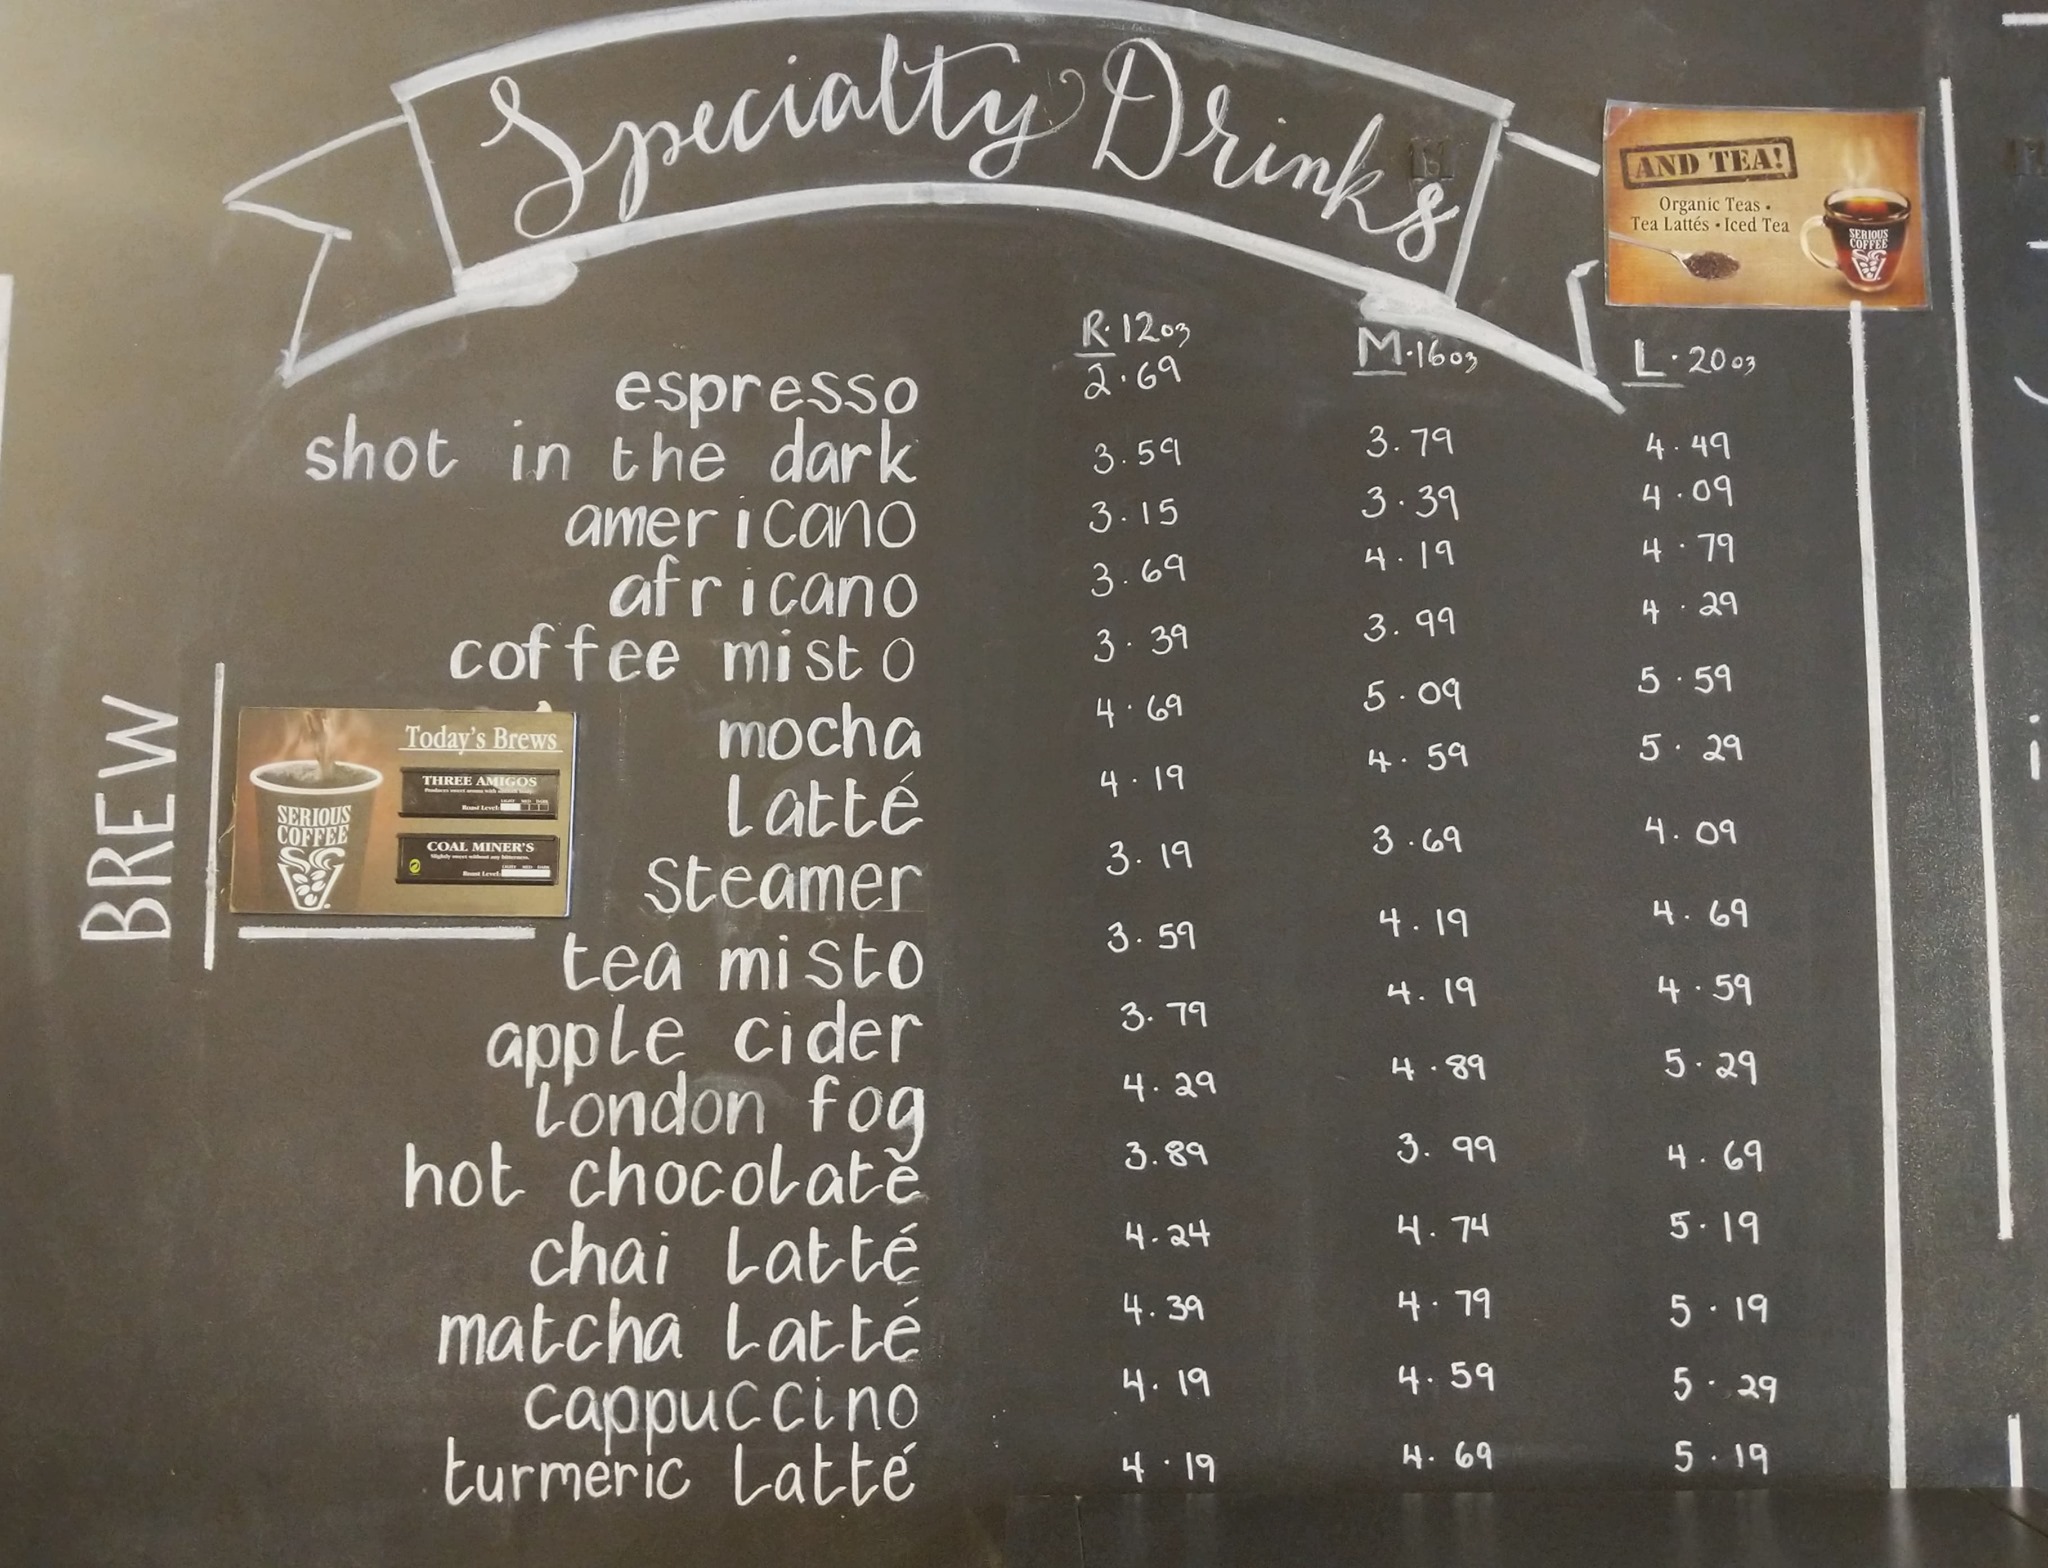 Specialty Drinks
AND TEA!
Organic Teas •
Tea Lattés • Iced Tea
SERIOUS
COFFEE
R. 12oz M. 16oz L. 20oz
espresso 2.69
shot in the dark 3.59 3.79 4.49
americano 3.15 3.39 4.09
africano 3.69 4.19 4.79
coffee misto 3.39 3.99 4.29
mocha 4.69 5.09 5.59
Latté 4.19 4.59 5.29
Steamer 3.19 3.69 4.09
tea misto 3.59 4.19 4.69
apple cider 3.79 4.19 4.59
London fog 4.29 4.89 5.29
hot chocolate 3.89 3.99 4.69
chai Latté 4.24 4.74 5.19
matcha Latté 4.39 4.79 5.19
cappuccino 4.19 4.59 5.29
turmeric Latté 4.19 4.69 5.19
BREW
SERIOUS
COFFEE
Today's Brews
THREE AMIGOS
Produces sweet aroma with
LIGHT MED DARK
Roast Level:
COAL MINER'S
Slightly sweet without any bitterness.
LIGHT MED DARK
Roast Level: